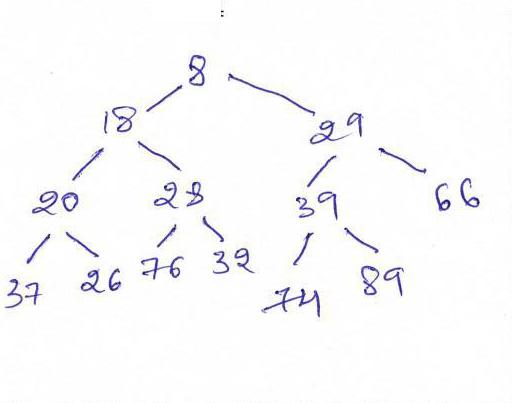 8
18 29
20 28 39 66
37 26 76 32 74 89